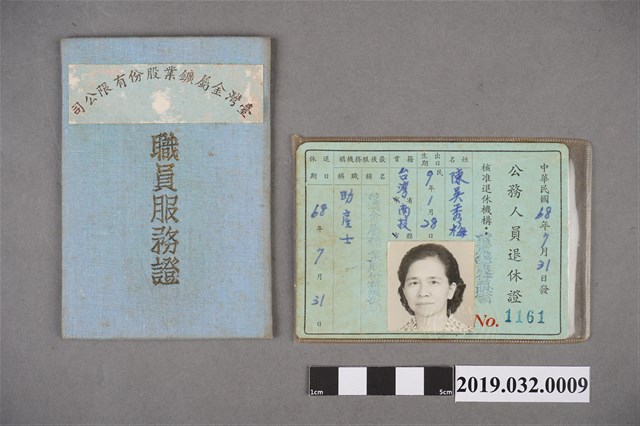 臺灣金屬鑛業股份有限公司
職員服務證
中華民國68年7月31日發
公務人員退休證
核准退休機構：
姓名 陳吳秀梅
出生日期 民9年1月28日
籍貫 台灣省南投縣
最後服務機關名稱
職稱 助產士
退休日期 68年7月31日
No. 1161
1cm 5cm
2019.032.0009